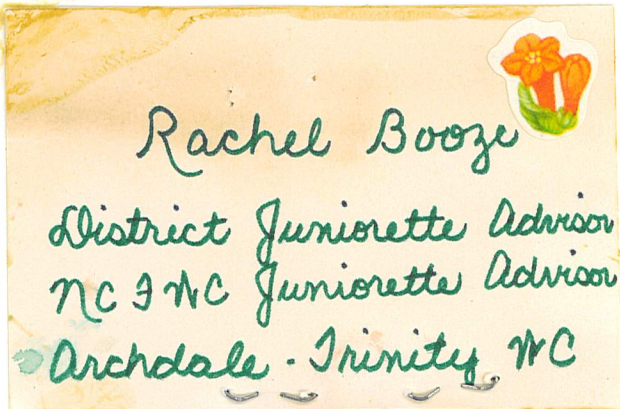 Rachel Booze
District Juniorette Advisor
NCFWC Juniorette Advisor
Archdale - Trinity WC